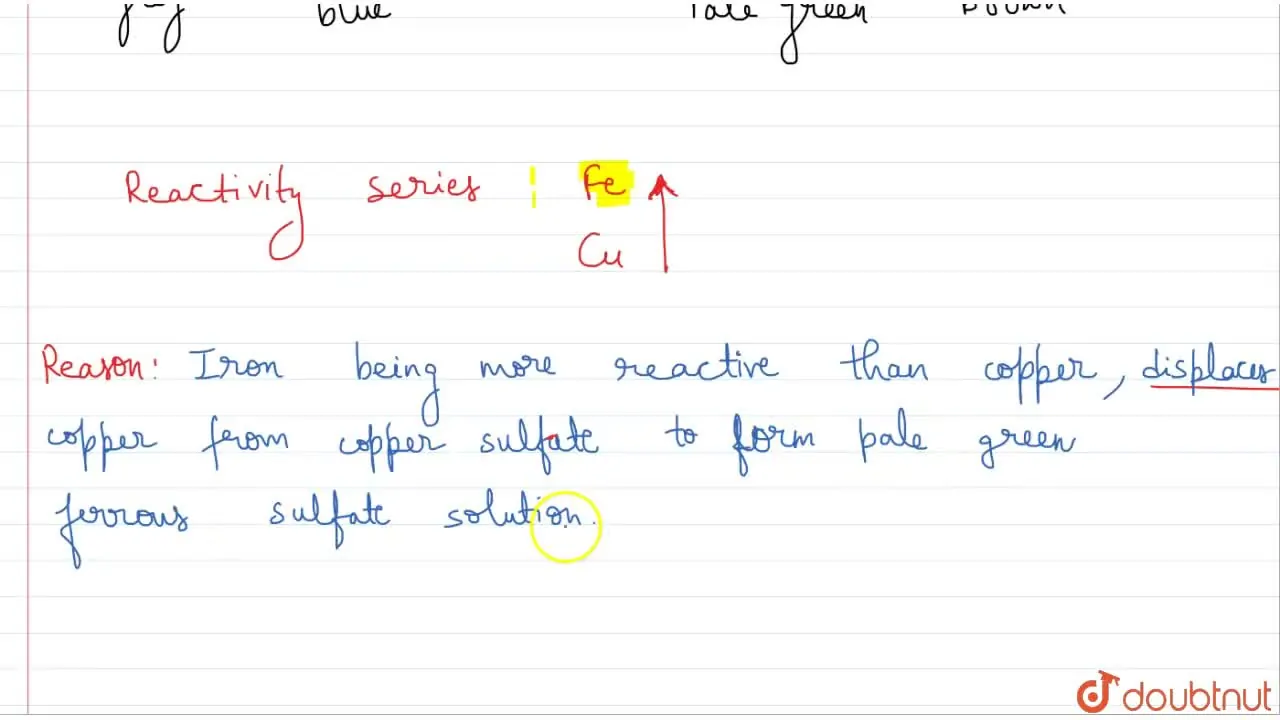 blue
Reactivity series : Fe
Cu
Reason: Iron being more reactive than copper, displaces
copper from copper sulfate to form pale green
ferrous sulfate solution.
doubtnut